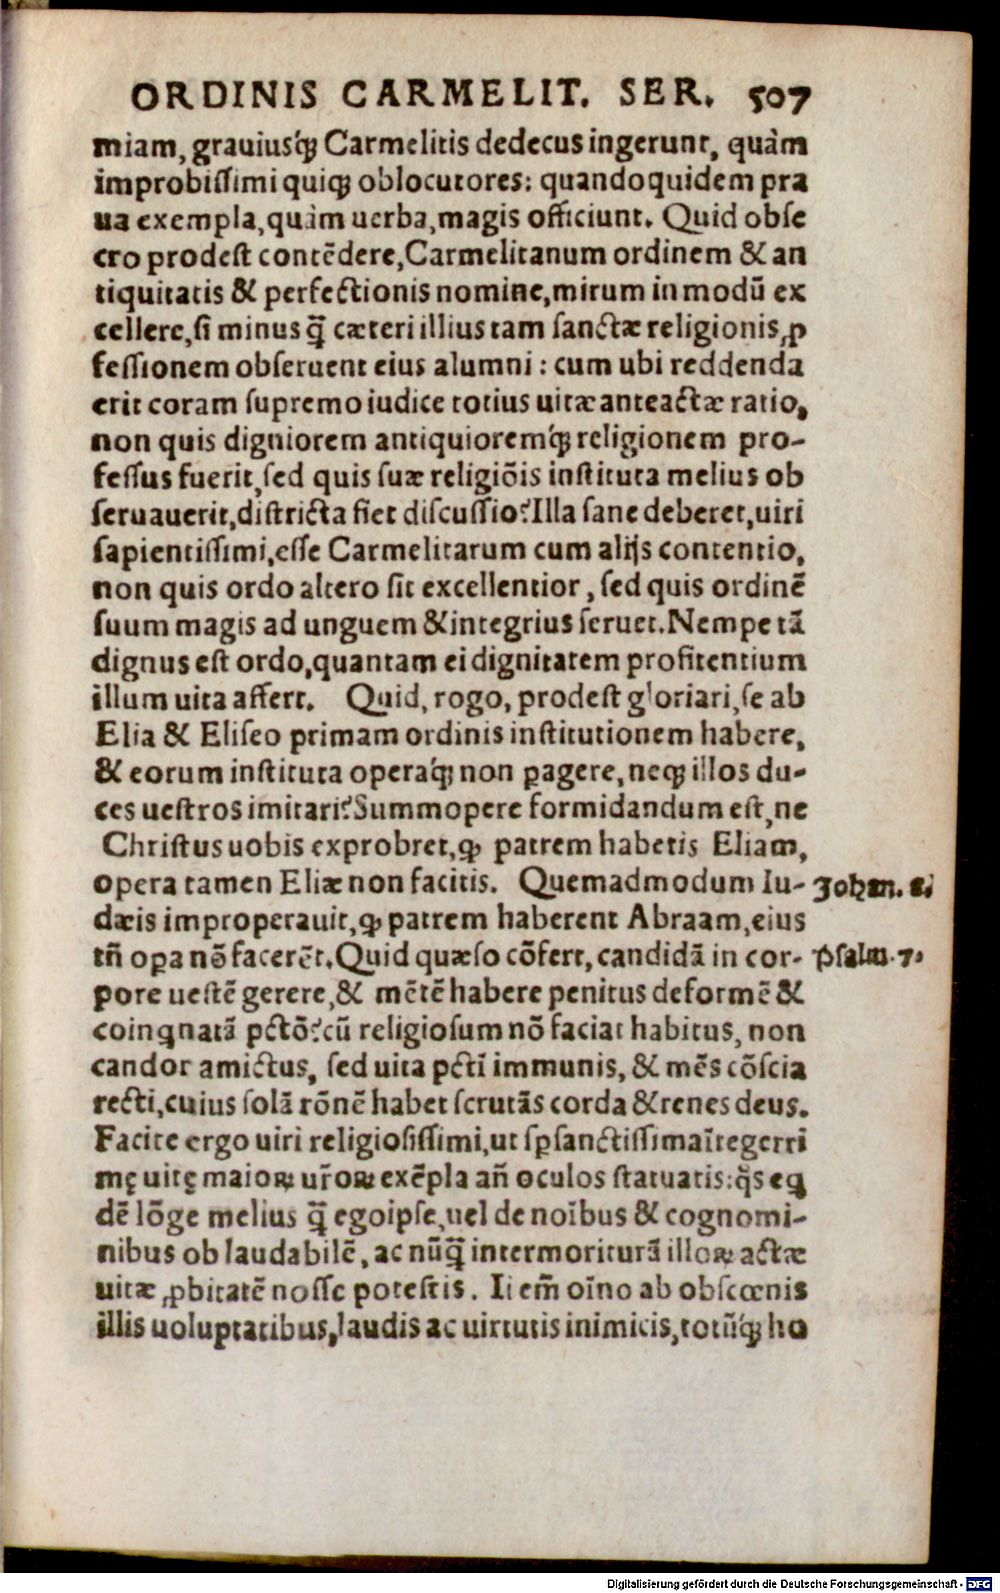 ORDINIS CARMELIT. SER. 507
miam, grauiusq́ꝫ Carmelitis dedecus ingerunt, quàm
improbissimi quiqꝫ oblocutores: quandoquidem pra
ua exempla, quàm uerba, magis officiunt. Quid obse
cro prodest contẽdere, Carmelitanum ordinem & an
tiquitatis & perfectionis nomine, mirum in modũ ex
cellere, si minus q̃ cæteri illius tam sanctæ religionis ꝓ
fessionem obseruent eius alumni: cum ubi reddenda
erit coram supremo iudice totius uitæ anteactæ ratio,
non quis digniorem antiquioremq́ꝫ religionem pro-
fessus fuerit, sed quis suæ religiõis instituta melius ob
seruauerit, districta fiet discussio? Illa sane deberet, uiri
sapientissimi, esse Carmelitarum cum alijs contentio,
non quis ordo altero sit excellentior, sed quis ordinẽ
suum magis ad unguem & integrius seruet. Nempe tã
dignus est ordo, quantam ei dignitatem profitentium
illum uita affert. Quid, rogo, prodest gloriari, se ab
Elia & Eliseo primam ordinis institutionem habere,
& eorum instituta operaq́ꝫ non ꝑagere, neqꝫ illos du-
ces uestros imitari? Summopere formidandum est, ne
Christus uobis exprobret, ꝙ patrem habetis Eliam,
opera tamen Eliæ non facitis. Quemadmodum Iu- Johan. 8.
dæis improperauit, ꝙ patrem haberent Abraam, eius
tñ oꝑa nõ facerẽt. Quid quæso cõfert, candidã in cor- Psalm. 7.
pore uestẽ gerere, & mẽtẽ habere penitus deformẽ &
coinqnatã pctõ? cũ religiosum nõ faciat habitus, non
candor amictus, sed uita pctĩ immunis, & mẽs cõscia
recti, cuius solã rõnẽ habet scrutãs corda & renes deus.
Facite ergo uiri religiosissimi, ut sꝑ sanctissima ĩtegerri
mę uitę maioꝝ ur̃oꝝ exẽpla añ oculos statuatis: q̃s eq
dẽ lõge melius q̃ egoipse, uel de noĩbus & cognomi-
nibus ob laudabilẽ, ac nũq̃ intermoriturã illoꝝ actæ
uitæ ꝓbitatẽ nosse potestis. Ii em̃ oĩno ab obscœnis
illis uoluptatibus, laudis ac uirtutis inimicis, totũq́ꝫ ho
Digitalisierung gefördert durch die Deutsche Forschungsgemeinschaft - DFG